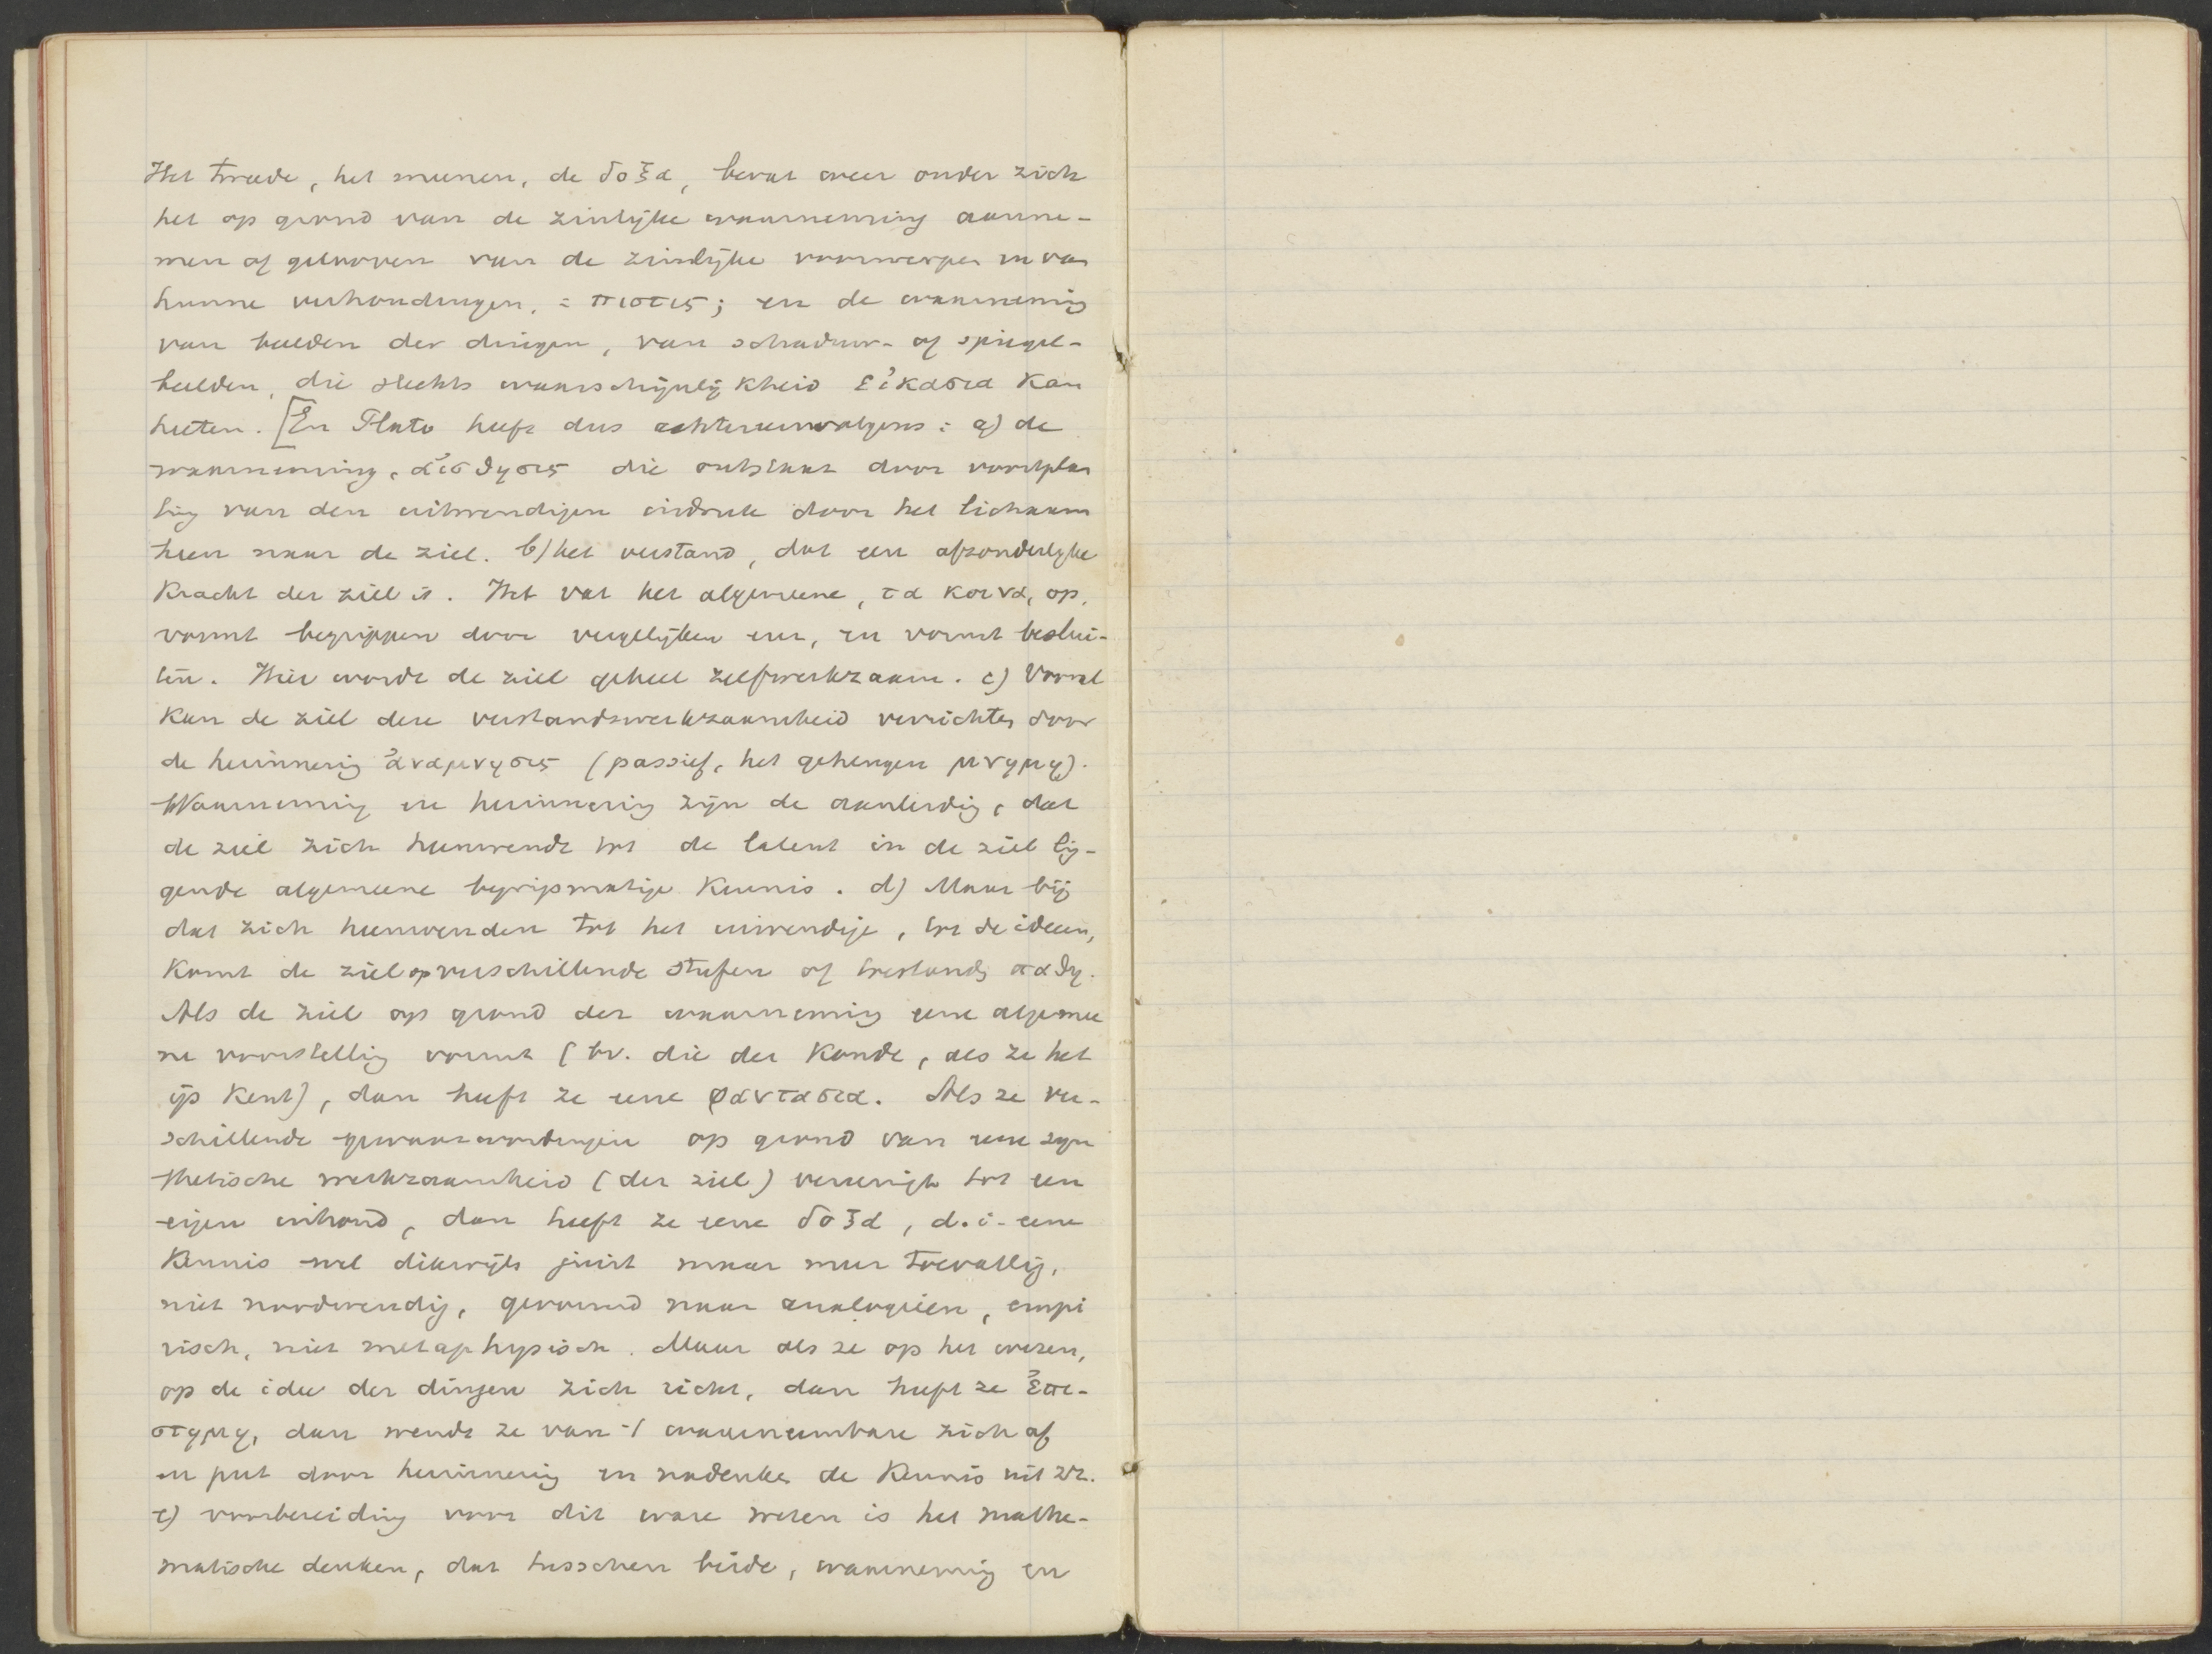 Het tweede, het meenen, de δοξα, bevat weer onder zich
het op grond van de zinlijke waarneming aanne-
men of gelooven van de zinlijke voorwerpen en van
hunne verhoudingen, = πιστις; en de waarneming
van beelden der dingen, van schaduw- of spiegel-
beelden, die slechts waarschijnlijkheid εἰκασια kan
heeten. [En Plato heeft dus achtereenvolgens: a) de
waarneming, αἰσθησις die ontstaat door voortplan
ting van den uitwendigen indruk door het lichaam
heen naar de ziel. b) het verstand, dat een afzonderlijke
kracht der ziel is. Het vat het algemeene, τα κοινα, op,
vormt begrippen door vergelijken enz, en vormt beslui-
ten. Hier wordt de ziel geheel zelfwerkzaam. c) Vooral
kan de ziel deze verstandswerkzaamheid verrichten door
de herinnering ἀναμνησις (passief, het geheugen μνημη).
Waarneming en herinnering zijn de aanleiding, dat
de ziel zich heenwendt tot de latent in de ziel lig-
gende algemeene begripsmatige kennis. d) Maar bij
dat zich heenwenden tot het inwendige, tot de ideeen,
komt de ziel op verschillende stufen of toestands παθη.
Als de ziel op grond der waarneming eene algemee
ne voorstelling vormt (bv. die der koude, als ze het
ijs kent), dan heeft ze eene φαντασια. Als ze ver-
schillende gewaarwordingen op grond van eene syn
thetische werkzaamheid (der ziel) vereenigt tot een
eigen inhoud, dan heeft ze eene δοξα, d.i. eene
kennis wel dikwijls juist maar meer toevallig,
niet noodwendig, gevormd naar analogieën, empi
risch, niet metaphysisch. Maar als ze op het wezen,
op de idee der dingen zich richt, dan heeft ze ἐπι-
στημη, dan wendt ze van 't waarneembare zich af
en put door herinnering en nadenken de kennis uit zz.
e) voorbereiding voor dit ware weten is het mathe-
matische denken, dat tusschen beide, waarneming en